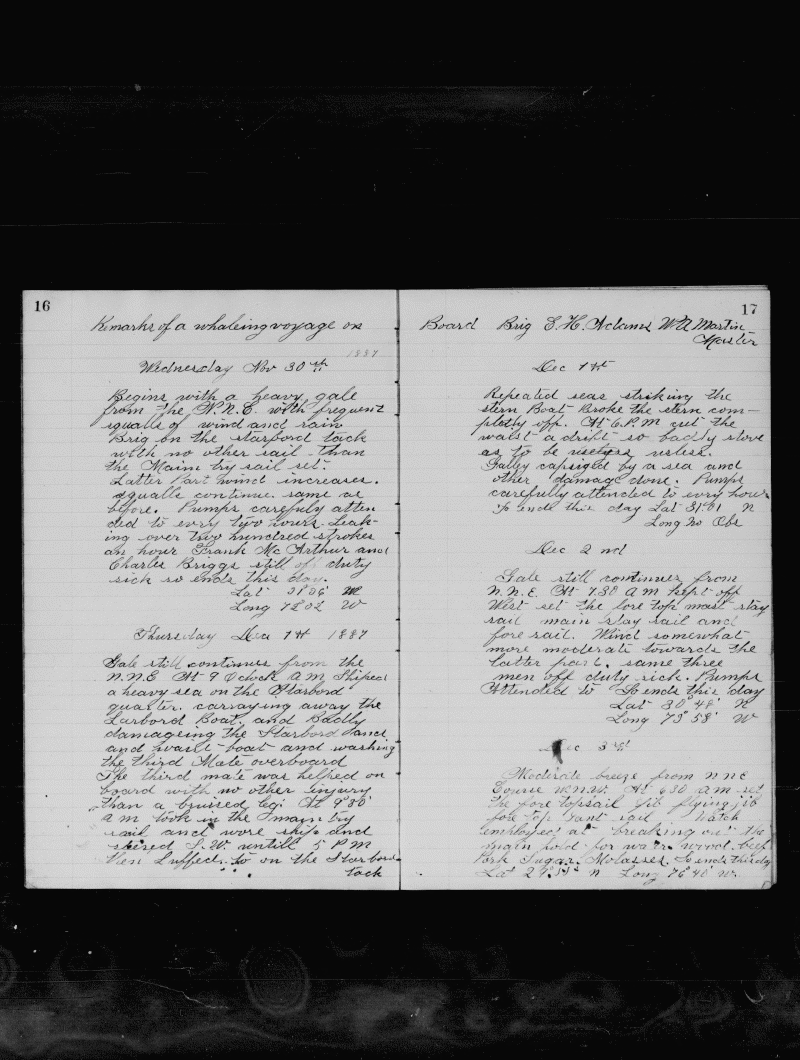 16
Remarks of a whaleing voyage on
1887
Wednesday Nov 30th
Begins with a heavy gale
from the N.N.E. with frequent
squalls of wind and rain
Brig on the starbord tack
with no other sail than
the Maim try sail set.
Latter Part wind increases.
squalls continue same as
before. Pumps carefuly atten
ded to evry two hours. Leak-
ing over two hundred strokes
an hour Frank Mc Arthur and
Charles Briggs still off duty
sick so ends this day.
Lat 31°06'
Long 72.02 W
Thursday Dec 1st 1887
Gale still continues from the
N.N.E At 9 Oclock A.M. Shiped
a heavy sea on the Starbord
quarter. carraying away the
Larbord Boat, and Badly
damageing the Starbord
and waist-boat and washing
the third Mate overboard
The third mate was helped on
board with no other injury
than a bruised leg. At 9°30'
a m took in the main try
sail and wore ship and
steered S.W. untill 5 P M
then Luffed to on the Starbord
tack
17
Board Brig E. H. Adams W A Martin
Master
Dec 1st
Repeated seas striking the
stern Boat Broke the stern com-
pletly off. At 6. P.M cut the
waist a drift so badly stove
as to be useless.
Galley capsized by a sea and
other damage done. Pumps
carefully attended to evry hour
So ends this day Lat 31°01 N
Long No Obs
Dec 2nd
Gale still continues from
N.N.E. At 7.30 A M kept off
West set the fore top mast stay
sail main stay sail and
fore sail. Wind somewhat
more moderate towards the
latter part. same three
men off duty sick. Pumps
Attended to So ends this day
Lat 30°48' N
Long 73°58' W
Dec 3rd
Moderate breeze from N N E
Course W.N.W. At 630 A M set
the fore topsail jib flying jib
fore top Gant sail Watch
employed at breaking out the
main hold for water wood. beef
Pork Sugar. Molasses. So ends this day
Lat N Long 76°40' W.